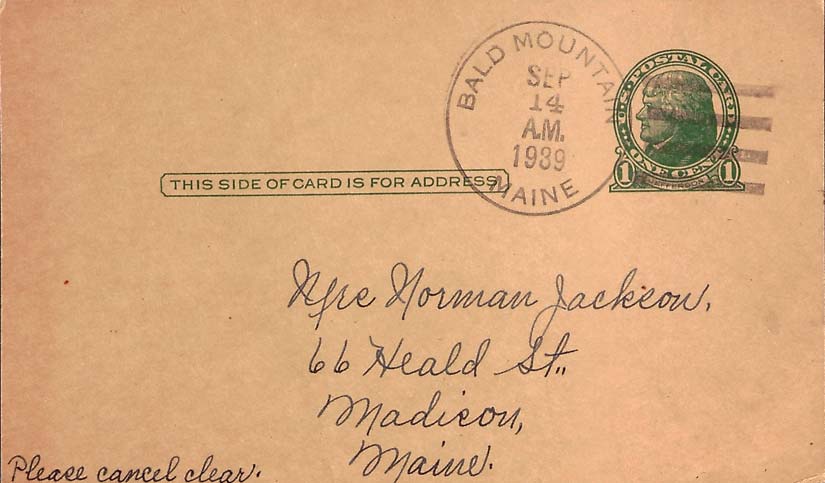 BALD MOUNTAIN
SEP
14
A.M.
1939
MAINE
U.S. POSTAL CARD
ONE CENT
1 JEFFERSON 1
THIS SIDE OF CARD IS FOR ADDRESS
Mrs Norman Jackson.
66 Heald St.,
Madison,
Maine.
Please cancel clear.